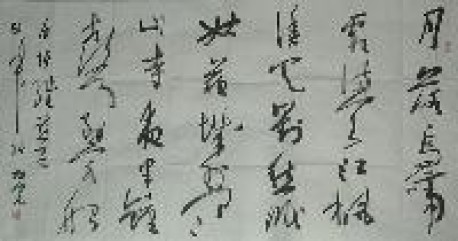 月落烏啼
霜滿天江楓
漁火對愁眠
姑蘇城外寒
山寺夜半鐘
聲到客船